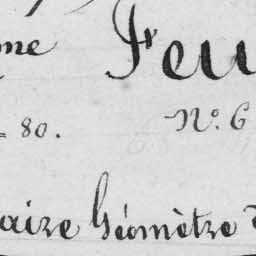 me Feu
= 80. N° 6
aire Géomètre